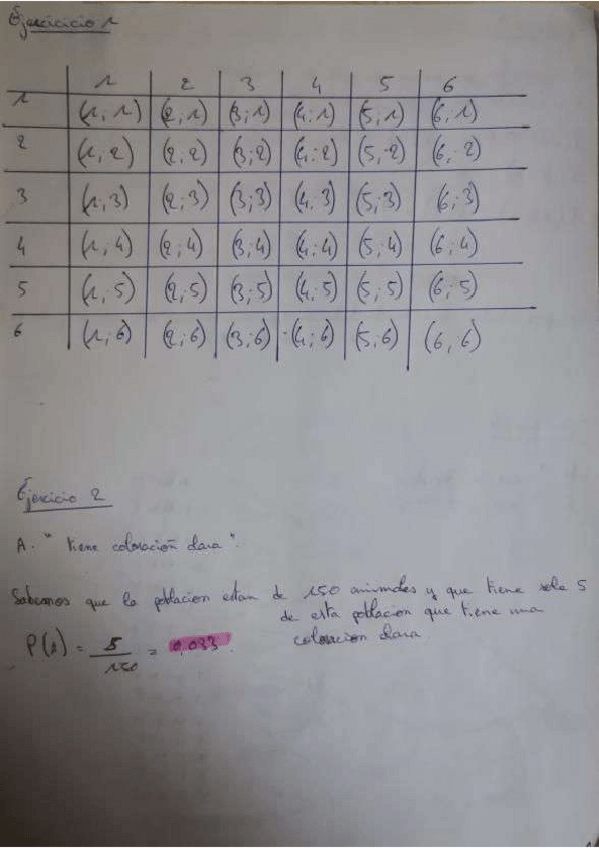 Ejercicicio 1
1 2 3 4 5 6
1 (1; 1) (2; 1) (3; 1) (4; 1) (5; 1) (6; 1)
2 (1; 2) (2; 2) (3; 2) (4; 2) (5; 2) (6; 2)
3 (1; 3) (2; 3) (3; 3) (4; 3) (5; 3) (6; 3)
4 (1; 4) (2; 4) (3; 4) (4; 4) (5; 4) (6; 4)
5 (1; 5) (2; 5) (3; 5) (4; 5) (5; 5) (6; 5)
6 (1; 6) (2; 6) (3; 6) (4; 6) (5; 6) (6, 6)
Ejercicio 2
A. " tiene coloración clara ".
Sabemos que la poblacion estan de 150 animales y que tiene solo 5
de esta poblacion que tiene una
coloracion clara
P(A) = 5/150 = 0,033.